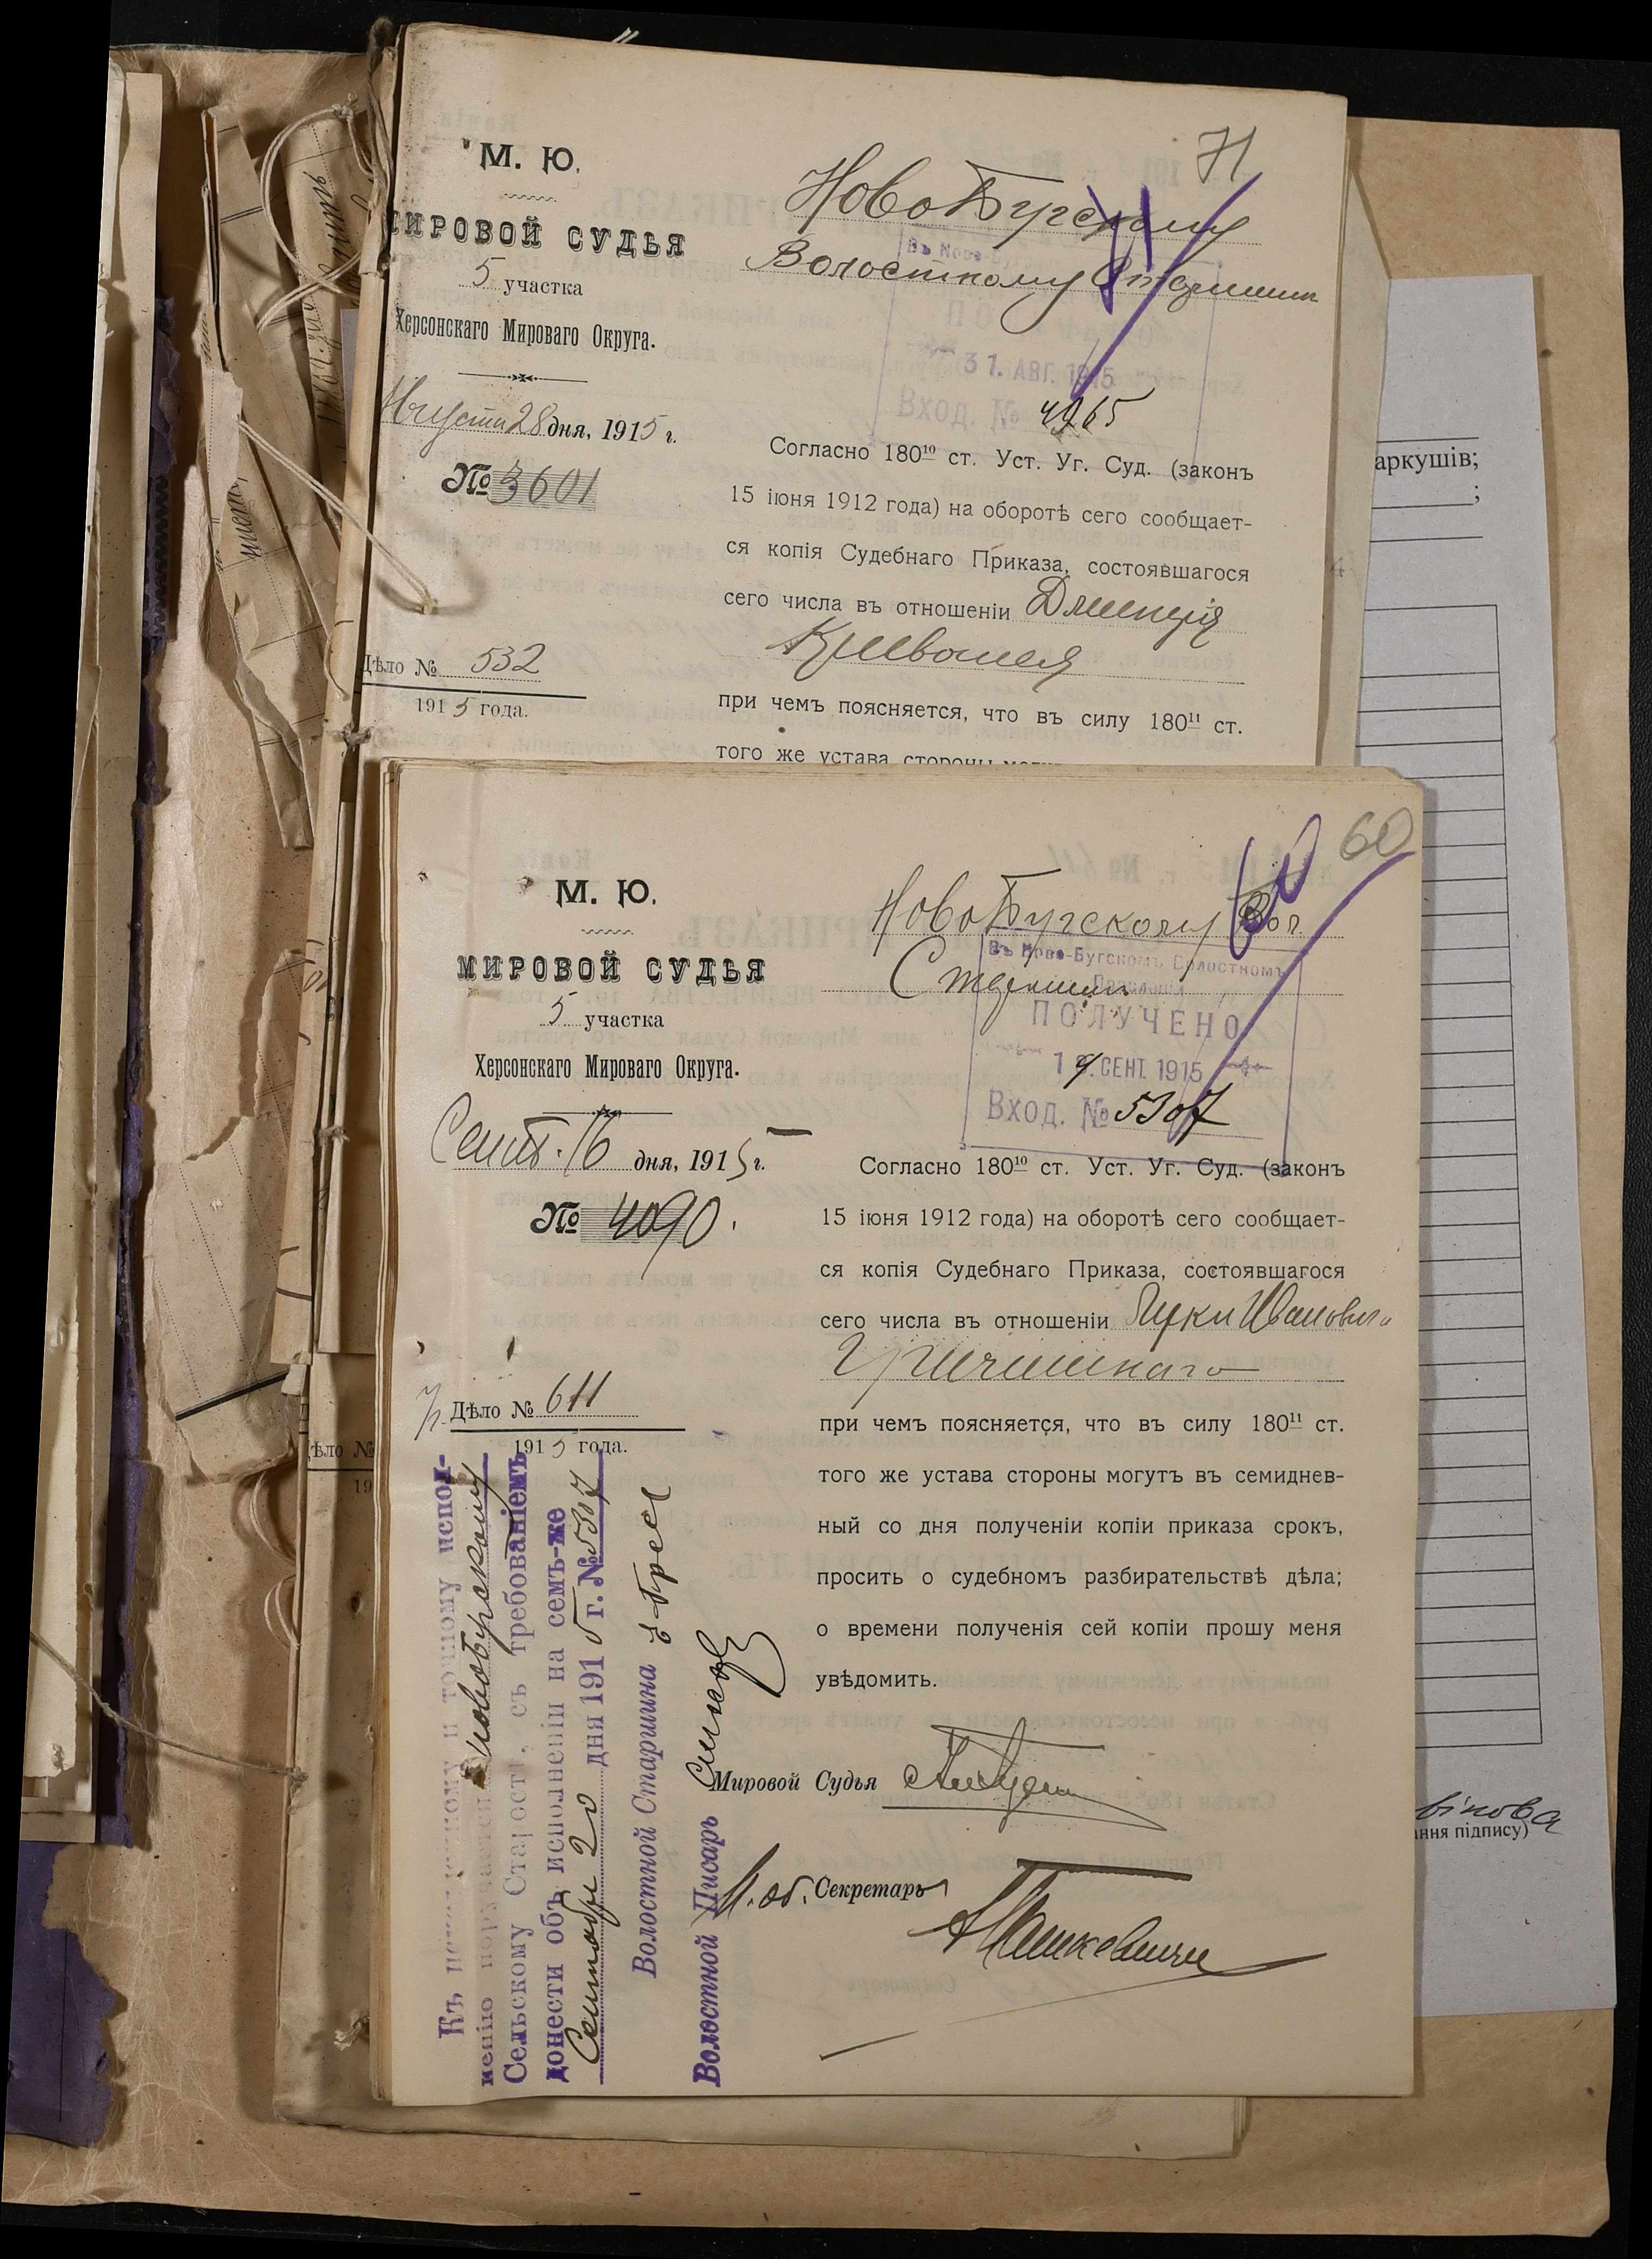 71
М. Ю.
МИРОВОЙ СУДЬЯ
5 участка
Херсонскаго Мироваго Округа.
Августа 28 дня, 1915 г.
№ 3601
Дѣло № 532
1915 года.
НовоБугскому
Волостному Старшинѣ
Въ Ново-
ПО
31. АВГ. 1915
Вход. № 4965
Согласно 180¹⁰ ст. Уст. Уг. Суд. (законъ
15 іюня 1912 года) на оборотѣ сего сообщает-
ся копія Судебнаго Приказа, состоявшагося
сего числа въ отношеніи Дмитрія
при чемъ поясняется, что въ силу 180¹¹ ст.
того же устава стороны
60
М. Ю.
МИРОВОЙ СУДЬЯ
5 участка
Херсонскаго Мироваго Округа.
Сент. 16 дня, 1915 г.
№ 4090.
Дѣло № 611
1915 года.
НовоБугскому Вол.
Старшинѣ
Въ Ново-Бугскомъ Волостномъ
Правленіи
ПОЛУЧЕНО
19. СЕНТ. 1915
Вход. № 5307
Согласно 180¹⁰ ст. Уст. Уг. Суд. (законъ
15 іюня 1912 года) на оборотѣ сего сообщает-
ся копія Судебнаго Приказа, состоявшагося
сего числа въ отношеніи Луки Ивановича
при чемъ поясняется, что въ силу 180¹¹ ст.
того же устава стороны могутъ въ семиднев-
ный со дня полученіи копіи приказа срокъ,
просить о судебномъ разбирательствѣ дѣла;
о времени полученія сей копіи прошу меня
увѣдомить.
Мировой Судья
И. об. Секретаря
Къ точному испол-
ненію поручается Новобугскому
Сельскому Старостѣ, съ требованіемъ
донести объ исполненіи на семъ-же
Сентября 20 дня 1915 г. № 5307
Волостной Старшина
Волостной Писарь
Дѣло №
19
аркушів;
;
ання підпису)